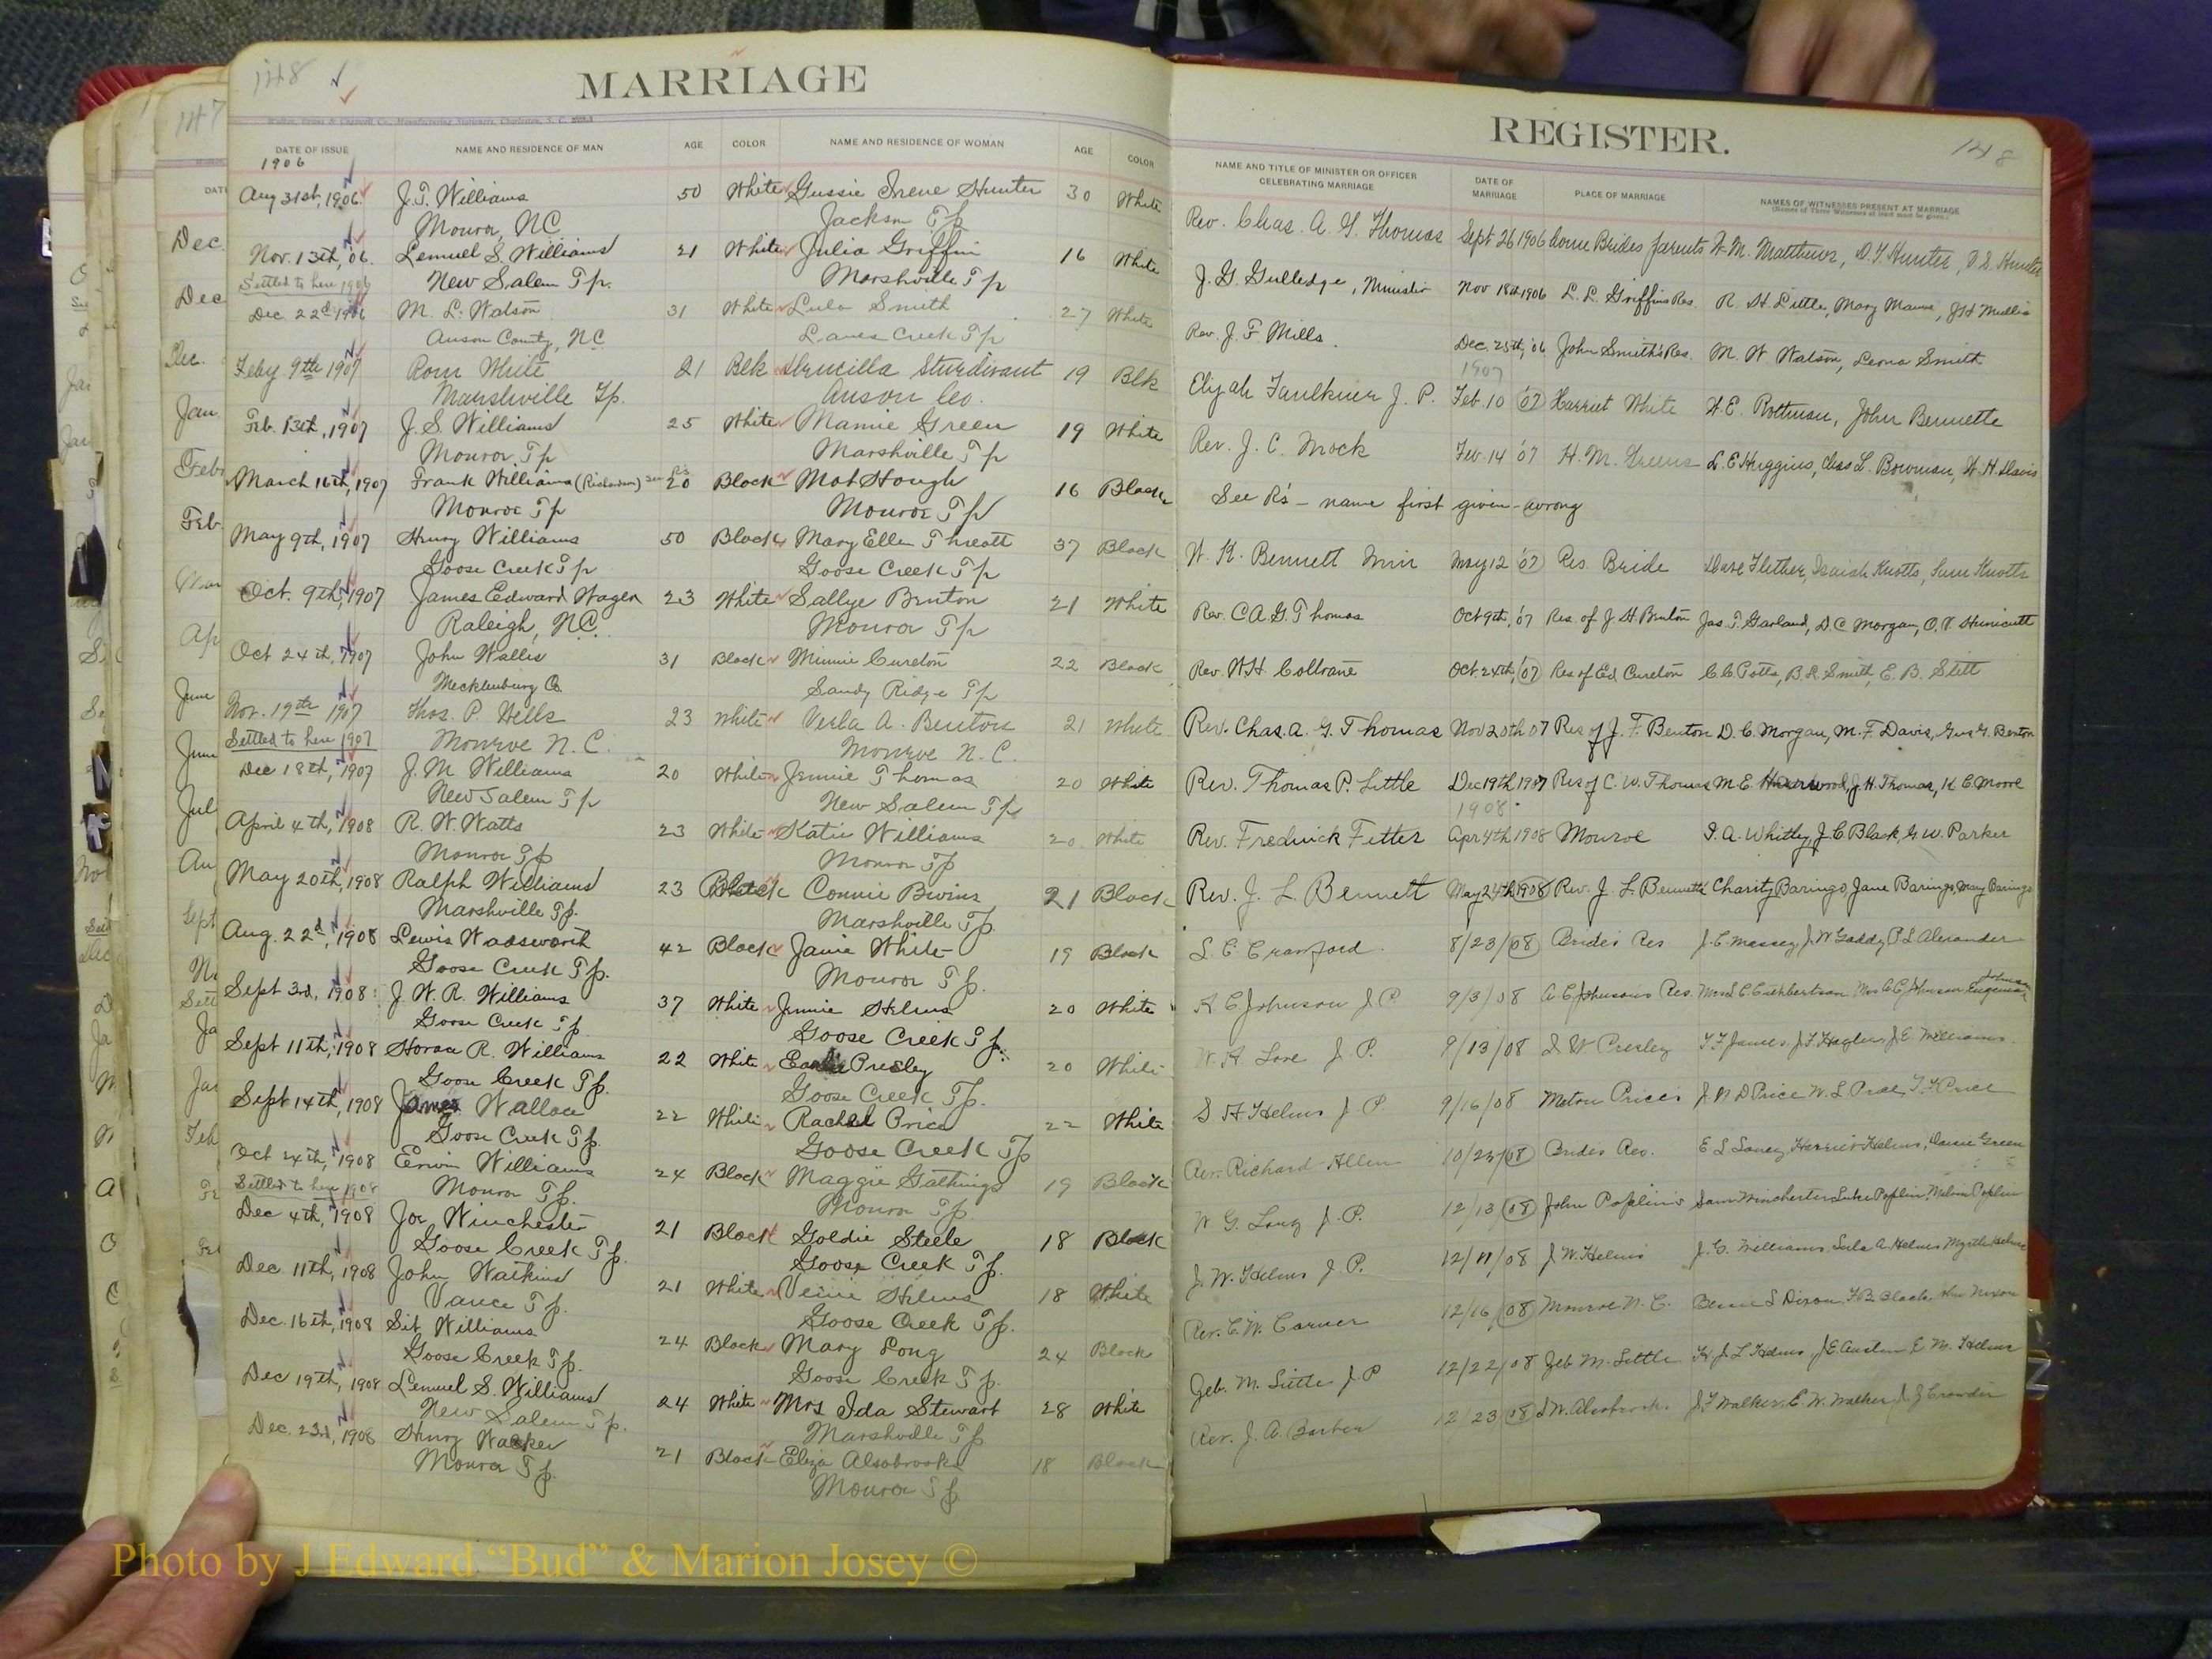 148
MARRIAGE
147
DATE OF ISSUE NAME AND RESIDENCE OF MAN AGE COLOR NAME AND RESIDENCE OF WOMAN AGE COLOR
1906
Aug 31st, 1906 J.T. Williams 50 White Gussie Irene Hunter 30 White
Monroe, N.C. Jackson Tp
Nov. 13th, 06. Lemuel S. Williams 21 White Julia Griffin 16 White
Settled to here 1906 New Salem Tp. Marshville Tp
Dec. 22d 1906 M. L. Watson 31 White Lula Smith 27 White
Anson County, N.C. Lanes Creek Tp
Feby 9th 1907 Rom White 21 Blk Drucilla Sturdivant 19 Blk
Marshville Tp. Anson Co.
Feb. 13th, 1907 J. S. Williams 25 White Mamie Green 19 White
Monroe Tp Marshville Tp
March 16th, 1907 Frank Williams (Richardson) See R's 20 Black Mat Hough 16 Black
Monroe Tp Monroe Tp
May 9th, 1907 Henry Williams 50 Black Mary Ellen Threatt 37 Black
Goose Creek Tp Goose Creek Tp
Oct. 9th, 1907 James Edward Wager 23 White Sallye Benton 21 White
Raleigh, N.C. Monroe Tp
Oct 24th, 1907 John Wallis 31 Black Minnie Cureton 22 Black
Mecklenburg Co. Sandy Ridge Tp
Nov. 19th 1907 Thos. P. Wells 23 White Verla A. Benton 21 White
Settled to here 1907 Monroe N.C. Monroe N.C.
Dec 18th, 1907 J. M. Williams 20 White Jennie Thomas 20 White
New Salem Tp New Salem Tp
April 4th, 1908 R. W. Watts 23 White Katie Williams 20 White
Monroe Tp Monroe Tp
May 20th, 1908 Ralph Williams 23 Black Connie Bivins 21 Black
Marshville Tp. Marshville Tp.
Aug. 22d, 1908 Lewis Wadsworth 42 Black Janie White 19 Black
Goose Creek Tp. Monroe Tp.
Sept 3rd, 1908 J. W. R. Williams 37 White Jennie Helms 20 White
Goose Creek Tp. Goose Creek Tp.
Sept 11th, 1908 Horace R. Williams 22 White Presley 20 White
Goose Creek Tp. Goose Creek Tp.
Sept 14th, 1908 James Wallace 22 White Rachel Price 22 White
Goose Creek Tp. Goose Creek Tp
Oct 24th, 1908 Erwin Williams 24 Black Maggie Gathings 19 Black
Settled to here 1908 Monroe Tp. Monroe Tp.
Dec 4th, 1908 Joe Winchester 21 Black Goldie Steele 18 Black
Goose Creek Tp. Goose Creek Tp.
Dec. 11th, 1908 John Watkins 21 White Helms 18 White
Vance Tp. Goose Creek Tp.
Dec. 16th, 1908 Sit Williams 24 Black Mary Long 24 Black
Goose Creek Tp. Goose Creek Tp.
Dec 19th, 1908 Lemuel S. Williams 24 White Mrs Ida Stewart 28 White
New Salem Tp. Marshville Tp
Dec. 23rd, 1908 Henry Walker 21 Black Eliza Alsobrooks 18 Black
Monroe Tp. Monroe Tp.
REGISTER.
148
NAME AND TITLE OF MINISTER OR OFFICER CELEBRATING MARRIAGE DATE OF MARRIAGE PLACE OF MARRIAGE NAMES OF WITNESSES PRESENT AT MARRIAGE
(Names of Three Witnesses at least must be given.)
Rev. Chas. A. G. Thomas Sept 26 1906 home Brides parents W. M. Matthews, D. T. Hunter, D. S. Hunter
J. G. Gulledge, Minister Nov 18th 1906 L. L. Griffins Res. R. H. Little, Mary Manus, J H Mullis
Rev. J. F. Mills. Dec. 25th, 06 John Smith's Res. M. W. Watson, Leona Smith
1907
Elijah Faulkner J. P. Feb. 10 '07 Harriet White John Bennette
Rev. J. C. Mock Feb. 14 '07 H. M. Greens L. E. Huggins, Chas L. Bowman, W. H. Davis
See R's - name first given - wrong
W. K. Bennett Min May 12 '07 Res. Bride Isaiah Knotts, Knotts
Rev. C A G Thomas Oct 9th, '07 Res. of J. H. Benton Jas. T. Garland, D. C. Morgan, O. V. Hunicutt
Rev. W H Coltrane Oct. 24th, '07 Res of Ed Cureton C. C. Potts, B. R. Smith, E. B. Stitt
Rev. Chas. A. G. Thomas Nov 20th 07 Res of J. F. Benton D. C. Morgan, M. F. Davis, Gus Y. Benton
Rev. Thomas P. Little Dec 19th 1907 Res of C. W. Thomas M. E. J. H. Thomas, K. C. Moore
1908
Rev. Fredrick Fetter Apr 4th 1908 Monroe I. A. Whitley, J. C. Black, G. W. Parker
Rev. J. L. Bennett May 24th 1908 Rev. J. L. Bennetts Charity Baringo, Jane Baringo, May Baringo
L. E. Crawford 8/23/08 Brides Res J. C. Massey, J W Gaddy, P L Alexander
A C Johnson J P 9/3/08 A C Johnsons Res. Mrs L C Cuthbertson Mrs A C Johnson Eugenia Johnson
W. H. Love J. P. 9/13/08 Presley T F James, J. F. Haglers, J. E. Williams.
S H Helms J. P. 9/16/08 Prices J. N D Price W. L. T. F Price
Rev. Richard Allen 10/25/08 Brides Res. E. L. Laney, Harriet Helms, Green
W. G. Long J. P. 12/13/08 John Poplins Sam Winchester, Luke Poplin, Poplin
J. W. Helms J. P. 12/11/08 J. W. Helms J. G. Williams, Lula A. Helms, Myrtle Helms
Rev. C. W. Carver 12/16/08 Monroe N. C. Dixon,
Geb. M. Little J P 12/22/08 Geb M. Little J. L. Helms, J. E. Austin, E. M. Helms
Rev. J. A. Barber 12/23/08 Alsobrooks J. F Walker, E. W. Walker,
Photo by J Edward “Bud” & Marion Josey ©